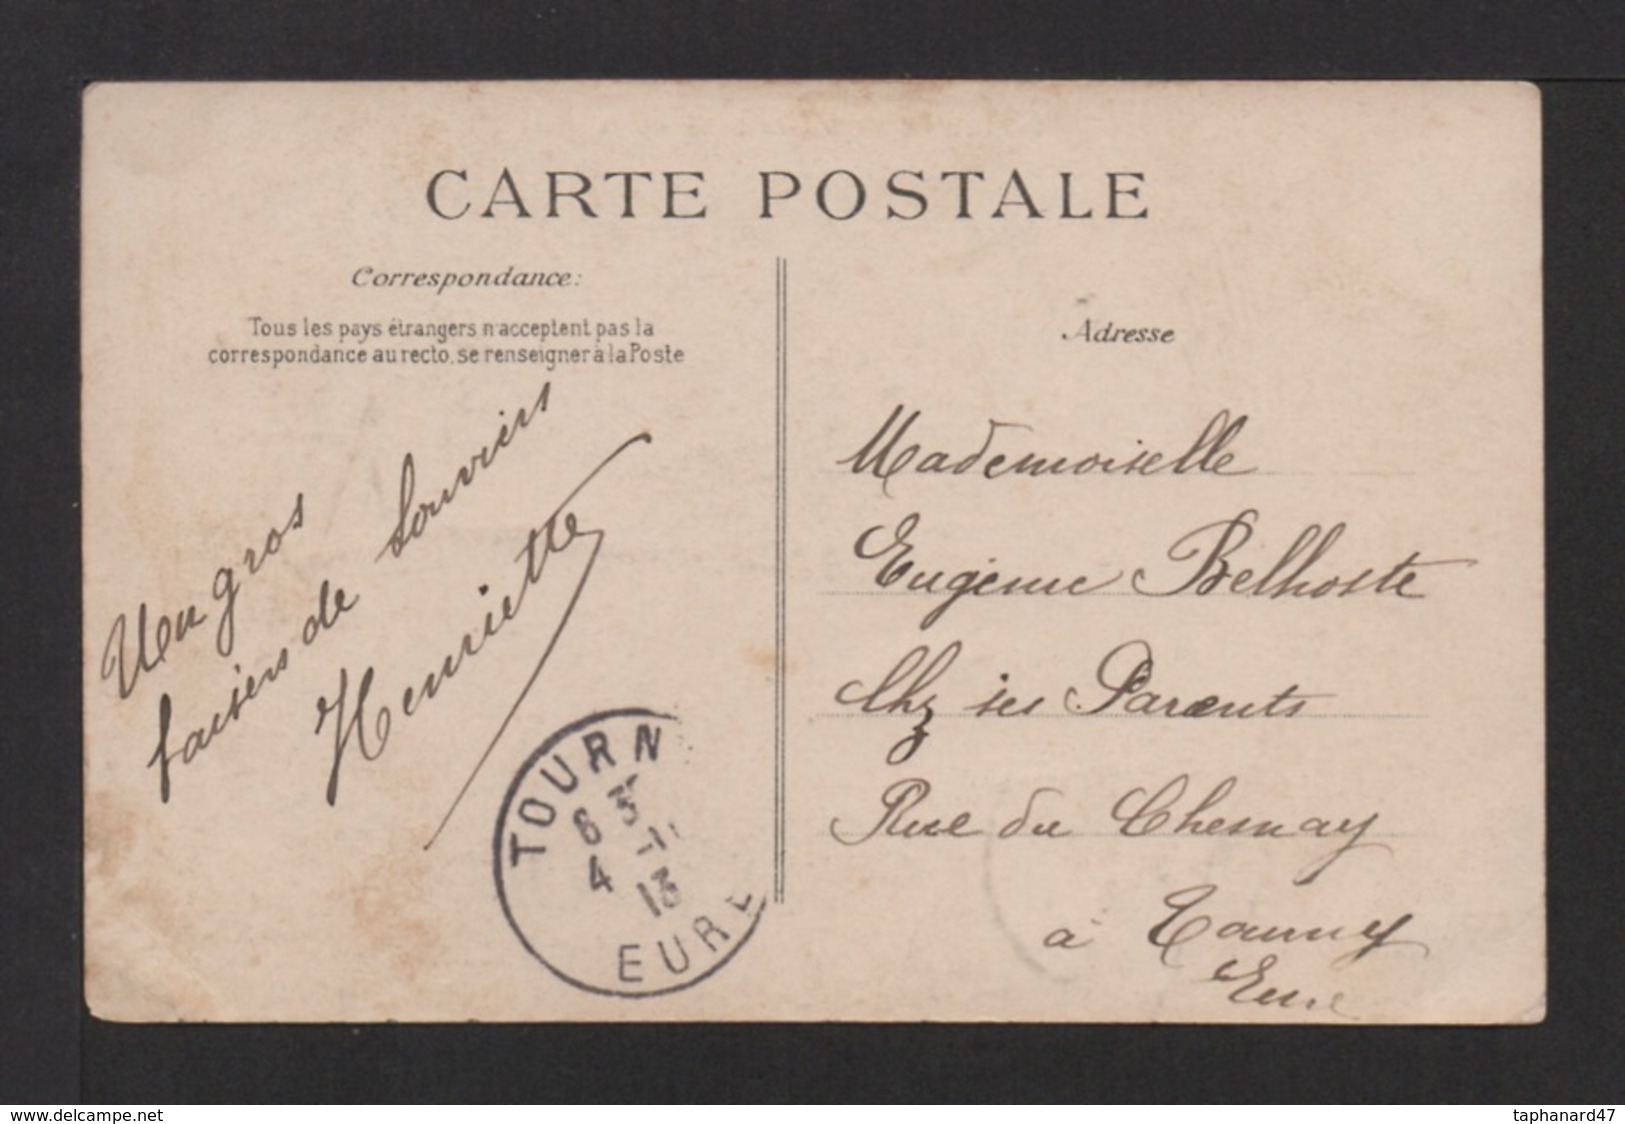 CARTE POSTALE
Correspondance:
Tous les pays étrangers n'acceptent pas la
correspondance au recto, se renseigner à la Poste
Un gros
de Souvirs
Henriette
TOURN
6 3
4 13
EURE
Adresse
Mademoiselle
Eugénie Belhoste
Chez ses Parents
Rue du Chesnay
à Tourny
Eure
www.delcampe.net
taphanard47